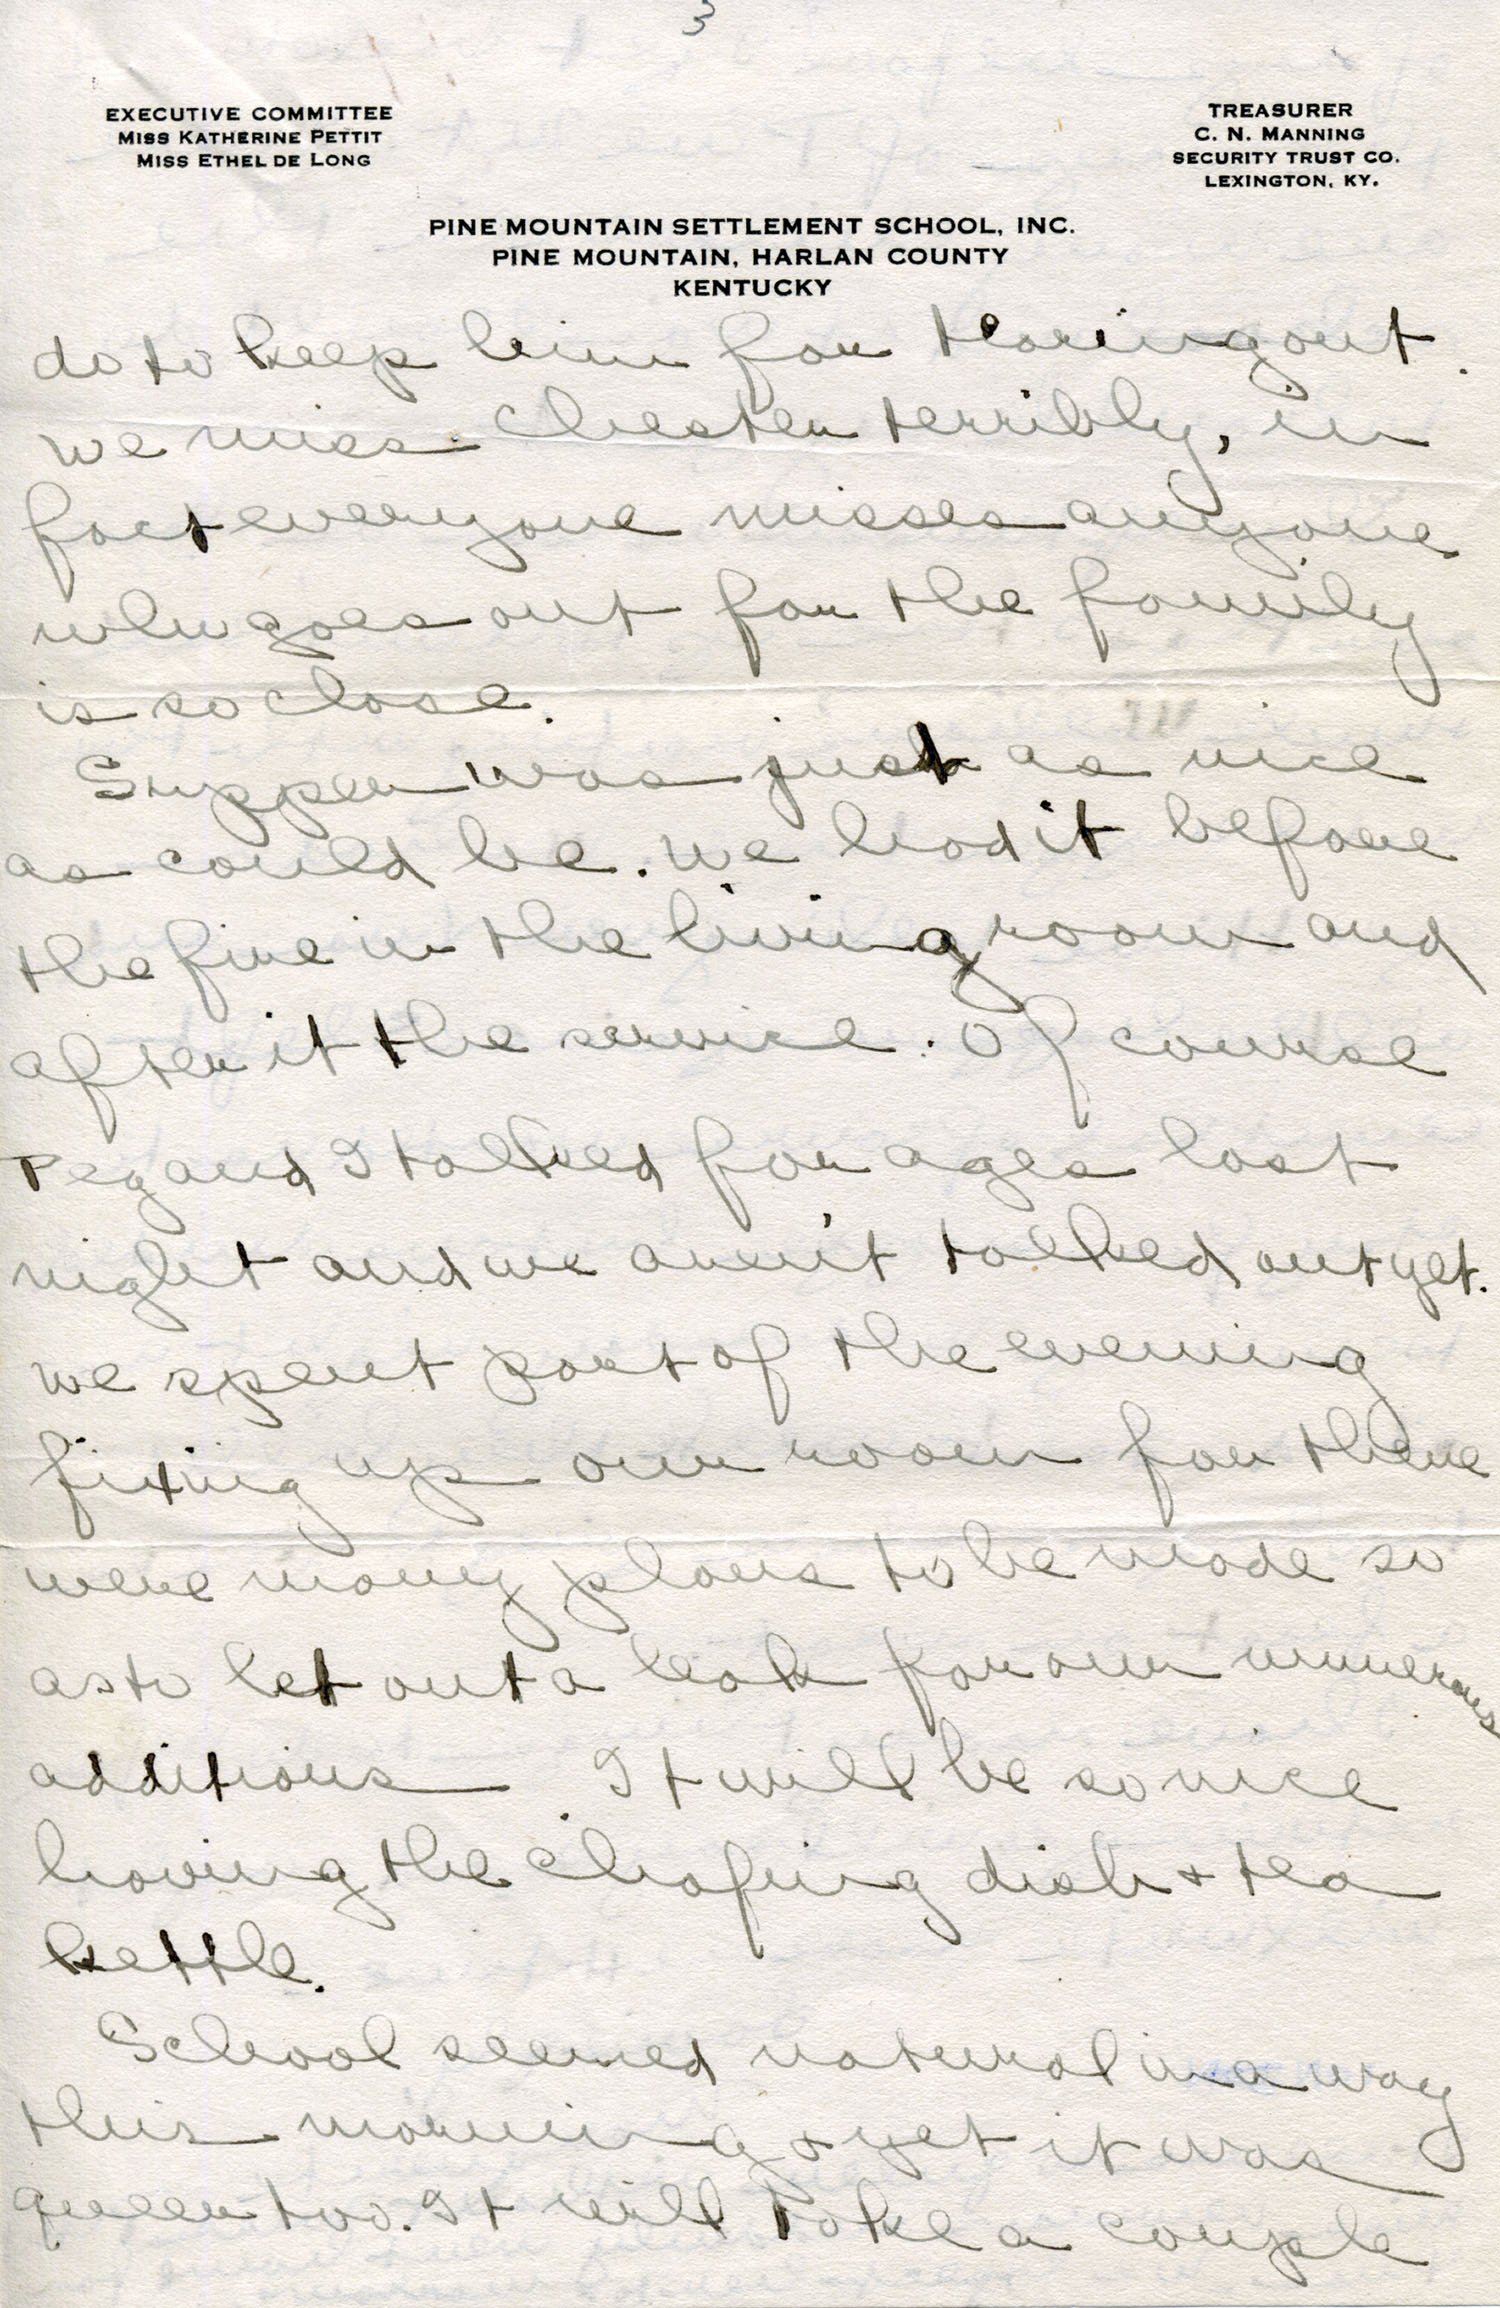 3
EXECUTIVE COMMITTEE
MISS KATHERINE PETTIT
MISS ETHEL DE LONG
TREASURER
C. N. MANNING
SECURITY TRUST CO.
LEXINGTON, KY.
PINE MOUNTAIN SETTLEMENT SCHOOL, INC.
PINE MOUNTAIN, HARLAN COUNTY
KENTUCKY
do to keep him for tearing out.
We miss Chester terribly, in
fact everyone misses anyone
who goes out for the family
is so close.
Supper was just as nice
as could be. We had it before
the fire in the living room and
after it the service. Of course
Peg and I talked for ages last
night and we aren't talked out yet.
We spent part of the evening
fixing up our room for there
were many plans to be made so
as to let out a leak for our numerous
additions. It will be so nice
having the chafing dish & tea
kettle.
School seemed natural in a way
this morning & yet it was
queer too. It will take a couple